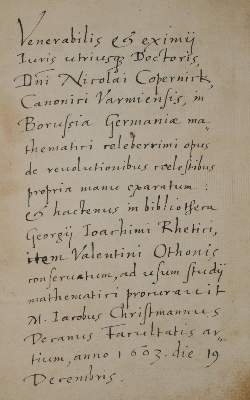 Venerabilis & eximij
Iuris utriusq Doctoris,
Dñi Nicolai Copernick,
Canonici Varmiensis, in
Borussia Germaniæ ma-
thematici celeberrimi opus
de revolutionibus cœlestibus
propria manu exaratum :
& hactenus in bibliotheca
Georgij Ioachimi Rhetici,
item Valentini Othonis
conservatum, ad usum studij
mathematici procuravit
M. Iacobus Christmannus
Decanus Facultatis ar-
tium, anno 1603. die 19
Decembris.